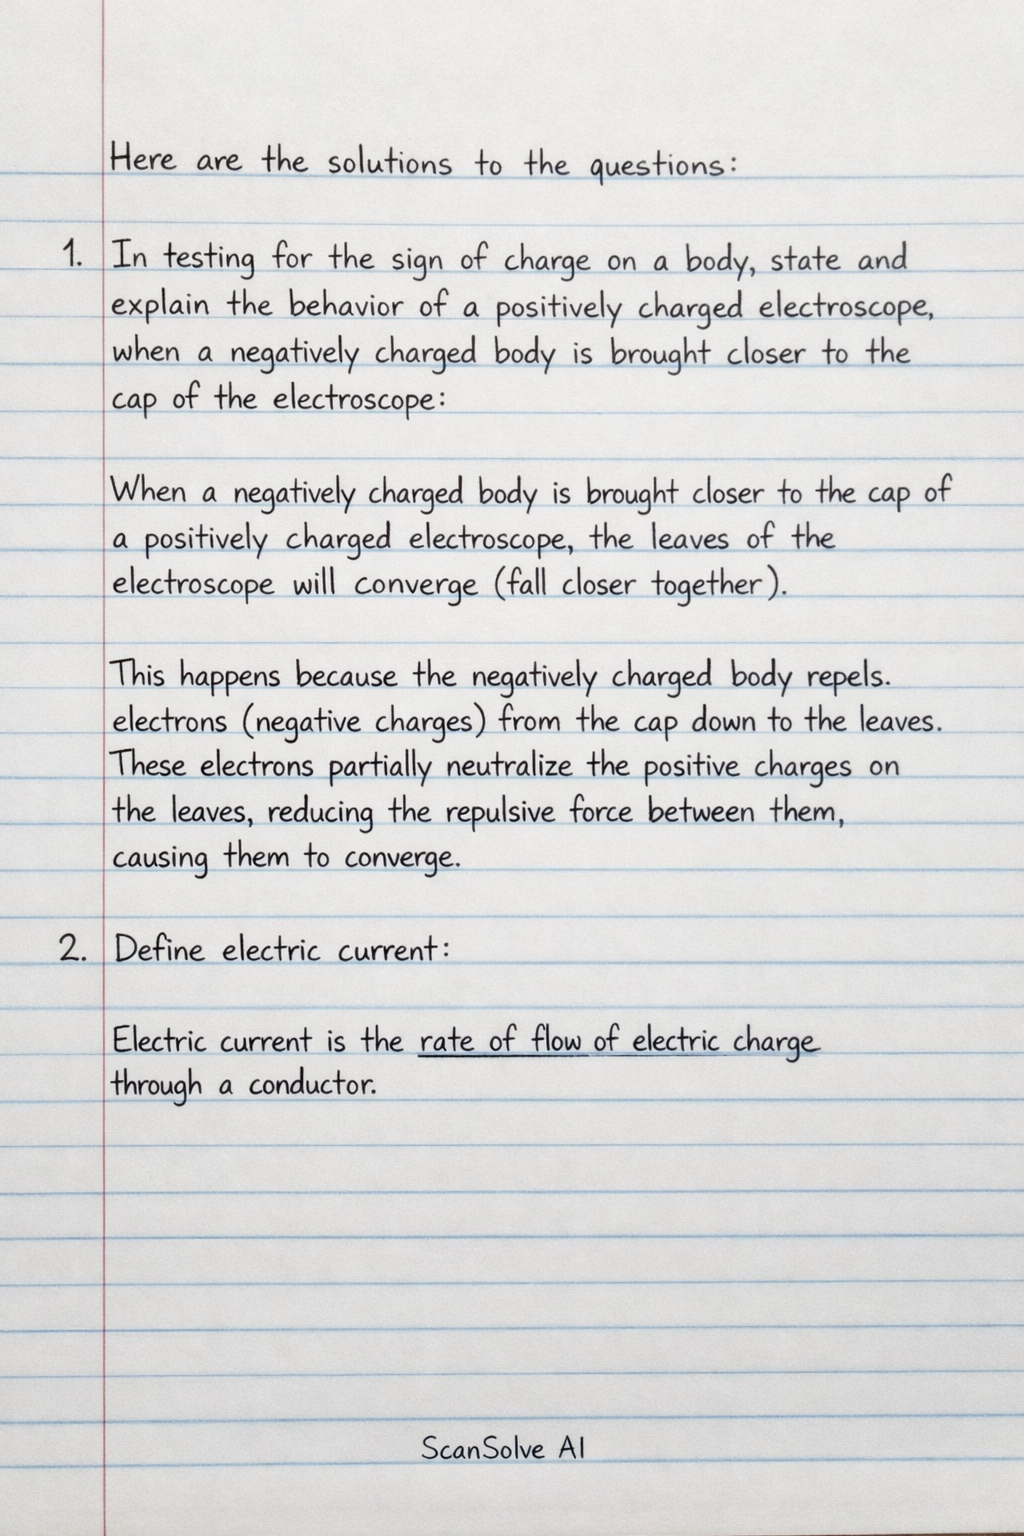 Here are the solutions to the questions:
1. In testing for the sign of charge on a body, state and
explain the behavior of a positively charged electroscope,
when a negatively charged body is brought closer to the
cap of the electroscope:
When a negatively charged body is brought closer to the cap of
a positively charged electroscope, the leaves of the
electroscope will converge (fall closer together).
This happens because the negatively charged body repels.
electrons (negative charges) from the cap down to the leaves.
These electrons partially neutralize the positive charges on
the leaves, reducing the repulsive force between them,
causing them to converge.
2. Define electric current:
Electric current is the rate of flow of electric charge
through a conductor.
ScanSolve AI